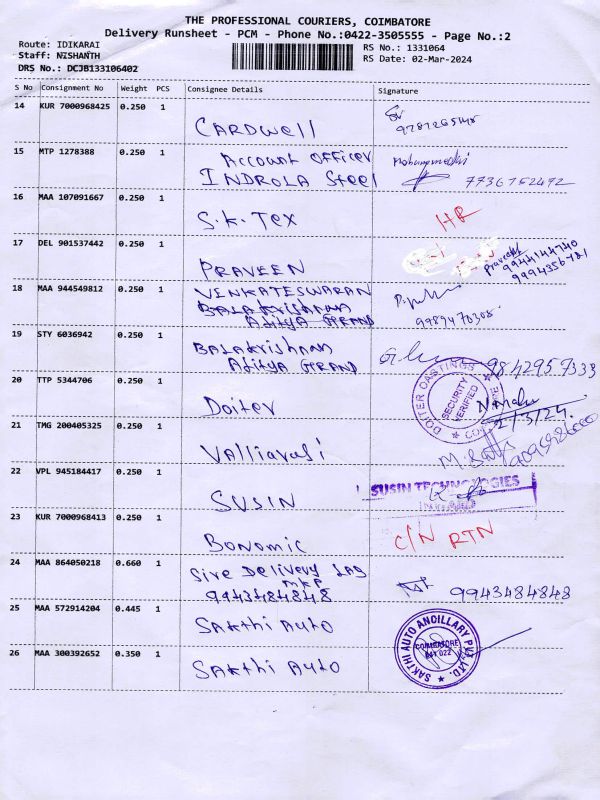 THE PROFESSIONAL COURIERS, COIMBATORE
Delivery Runsheet - PCM - Phone No.:0422-3505555 - Page No.:2
Route: IDIKARAI
RS No.: 1331064
Staff: NISHANTH
RS Date: 02-Mar-2024
DRS No.: DCJB133106402
S No Consignment No Weight PCS Consignee Details Signature
14 KUR 7000968425 0.250 1
CARDWELL
15 MTP 1278388 0.250 1
Account officer
INDROLA Steel
7736752492
16 MAA 107091667 0.250 1
S.K. TEX
HR
17 DEL 901537442 0.250 1
PRAVEEN
Praveen
9944144740
9994356481
18 MAA 944549812 0.250 1
VENKATESWARAN
Balakrishnan
Aditya GRAND
9989470308
19 STY 6036942 0.250 1
Balakrishnan
Aditya GRAND
9842959333
20 TTP 5344706 0.250 1
Doiter
DOITER CASTINGS
SECURITY
VERIFIED
2/3/24.
21 TMG 200405325 0.250 1
Valliavasi
22 VPL 945184417 0.250 1
SUSIN
SUSIN TECHNOLOGIES
23 KUR 7000968413 0.250 1
Bonomic
C/N RTN
24 MAA 864050218 0.660 1
Sire Delivery
MKP
9943484848
9943484848
25 MAA 572914204 0.445 1
SAKTHI AUTO
SAKTHI AUTO ANCILLARY PVT. LTD.
COIMBATORE
641 022
26 MAA 300392652 0.350 1
SAKTHI AUTO